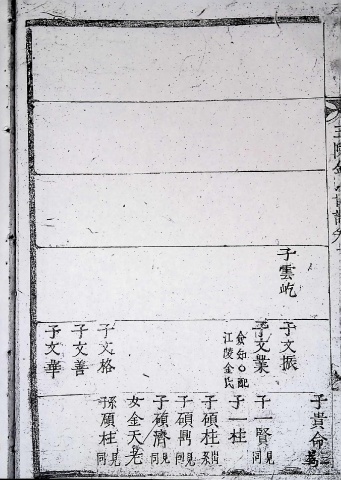 子雲屹
子文振
子文業
僉知○配
江陵金氏
子文格
子文善
子文華
子貴命
子一賢 見同
子一柱
子碩柱
子碩興 見同
子碩濟 見同
女金天光
孫碩柱 見同